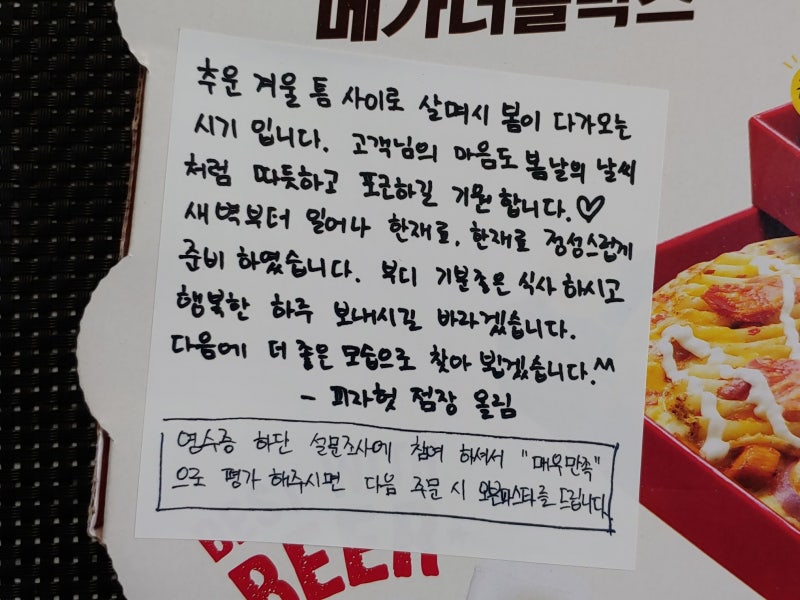 메가더블박스
추운 겨울 틈 사이로 살며시 봄이 다가오는
시기 입니다. 고객님의 마음도 봄날의 날씨
처럼 따듯하고 포근하길 기원 합니다.♡
새벽부터 일어나 한재료, 한재료 정성스럽게
준비 하였습니다. 부디 기분좋은 식사 하시고
행복한 하루 보내시길 바라겠습니다.
다음에 더 좋은 모습으로 찾아 뵙겠습니다.^^
- 피자헛 점장 올림
영수증 하단 설문조사에 참여 하셔서 "매우만족"
으로 평가 해주시면 다음 주문 시 오븐파스타를 드립니다.
BEER